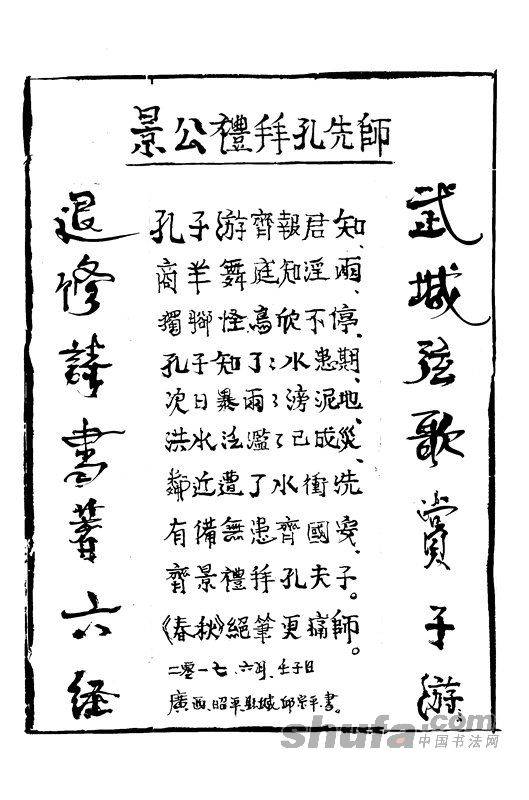 景公禮拜孔先師
武城弦歌賞子游
孔子游齊報君知、
商羊舞庭知淫雨、
獨腳怪鳥欣不停、
孔子知了:水患期、
次日暴雨:滂泥地、
洪水泛濫了已成災、
鄰近遭了水衝洗
有備無患齊國安、
齊景禮拜孔夫子。
《春秋》絕筆更痛師。
二零一七、六月、壬子日
廣西、昭平縣城邱宗平書。
退修詩書著六经
shufa.com
中国书法网